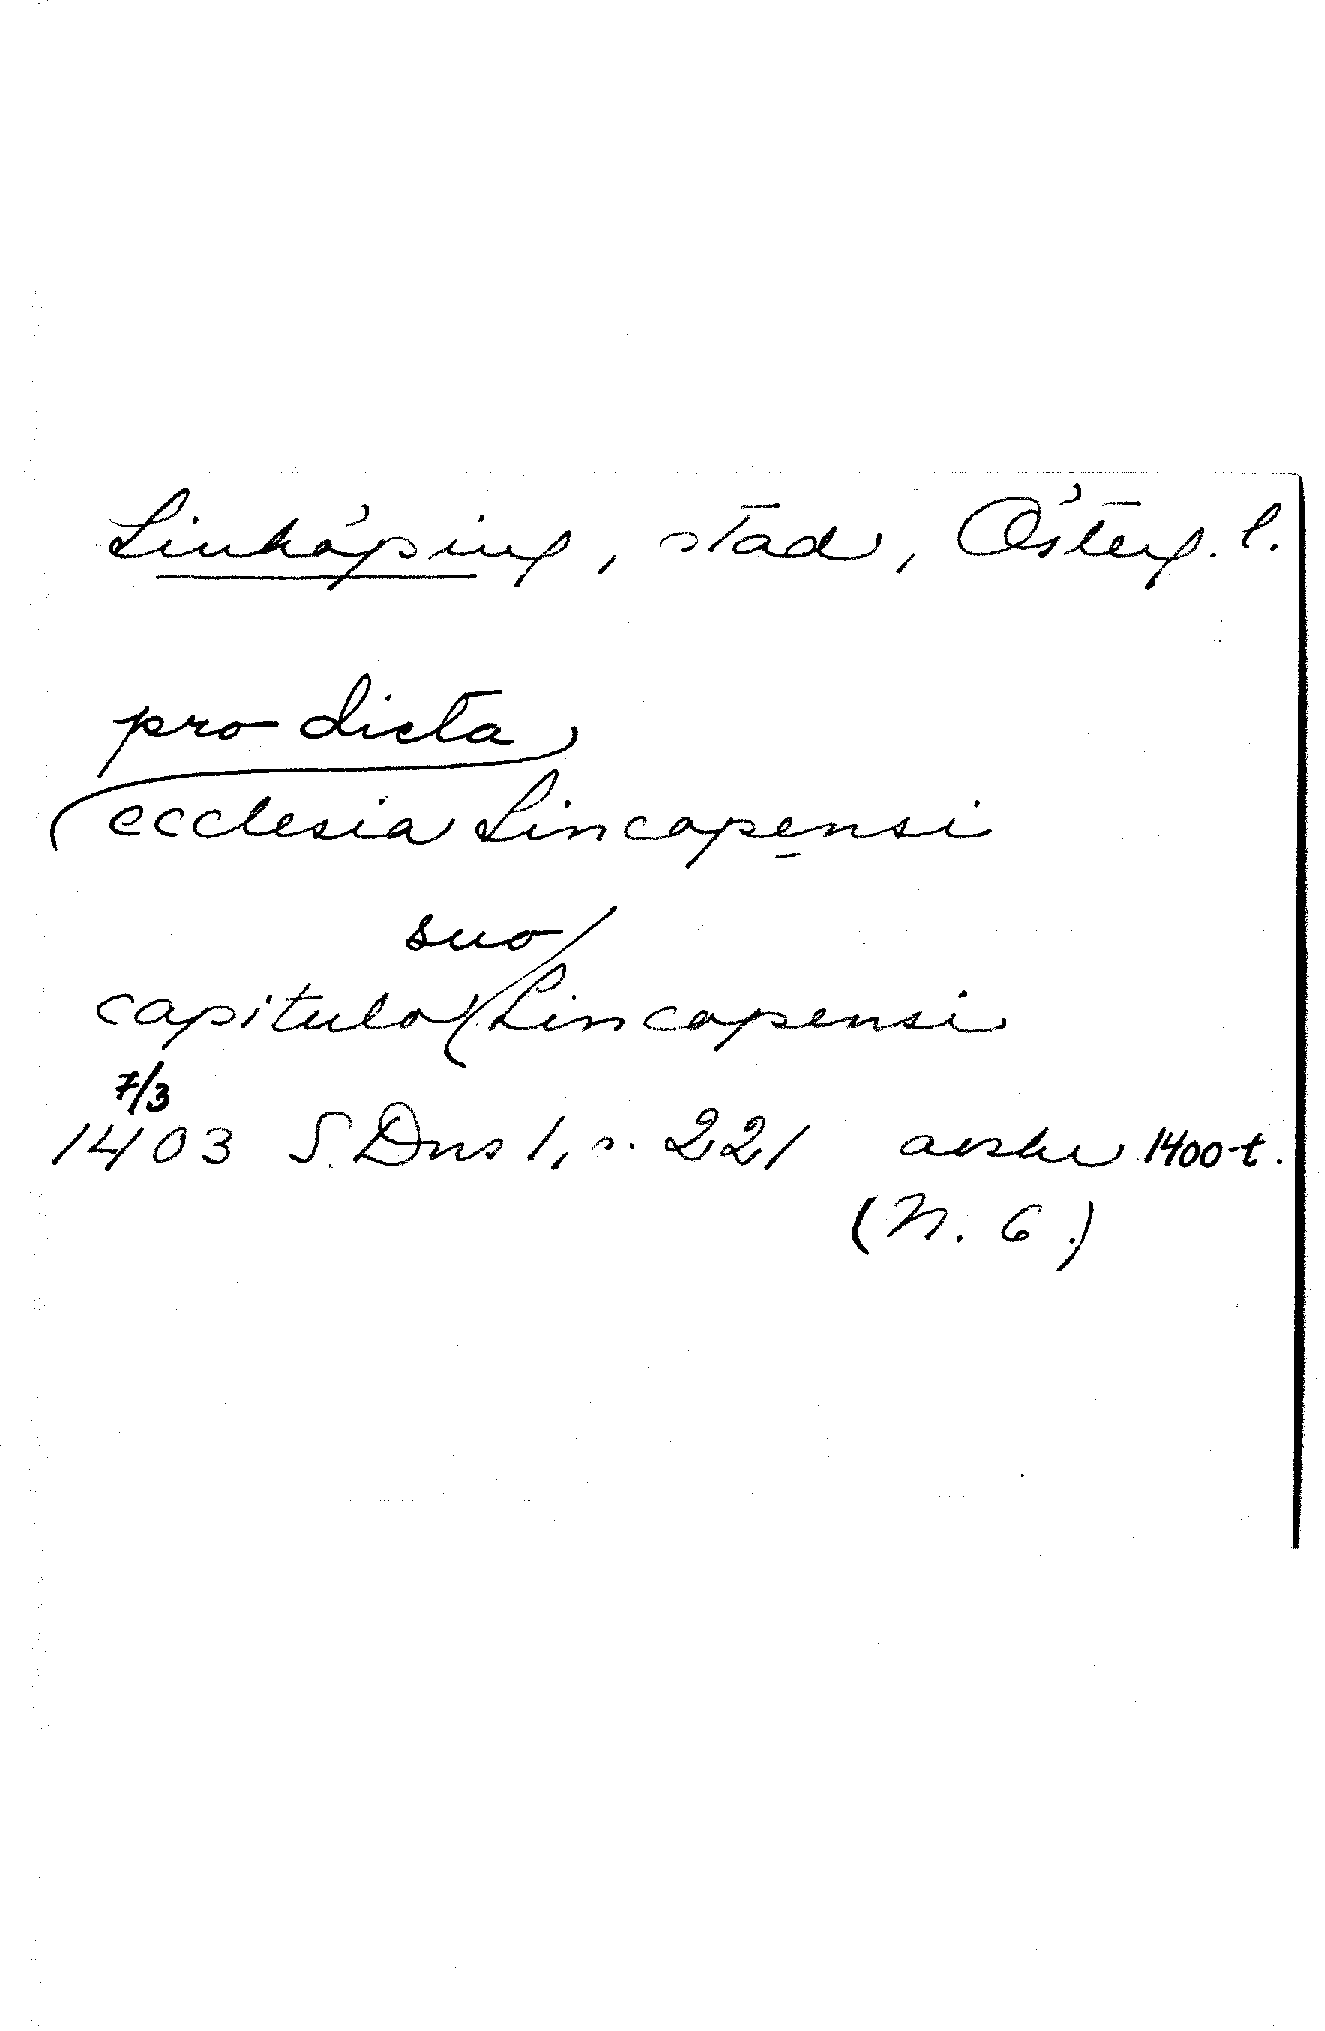 Linköping, stad, Österg. l.
pro dicta
ecclesia Lincopensi
suo
capitulo Lincopensi
7/3
1403 S. Dns 1, s. 221 avskr 1400-t.
(N. G.)